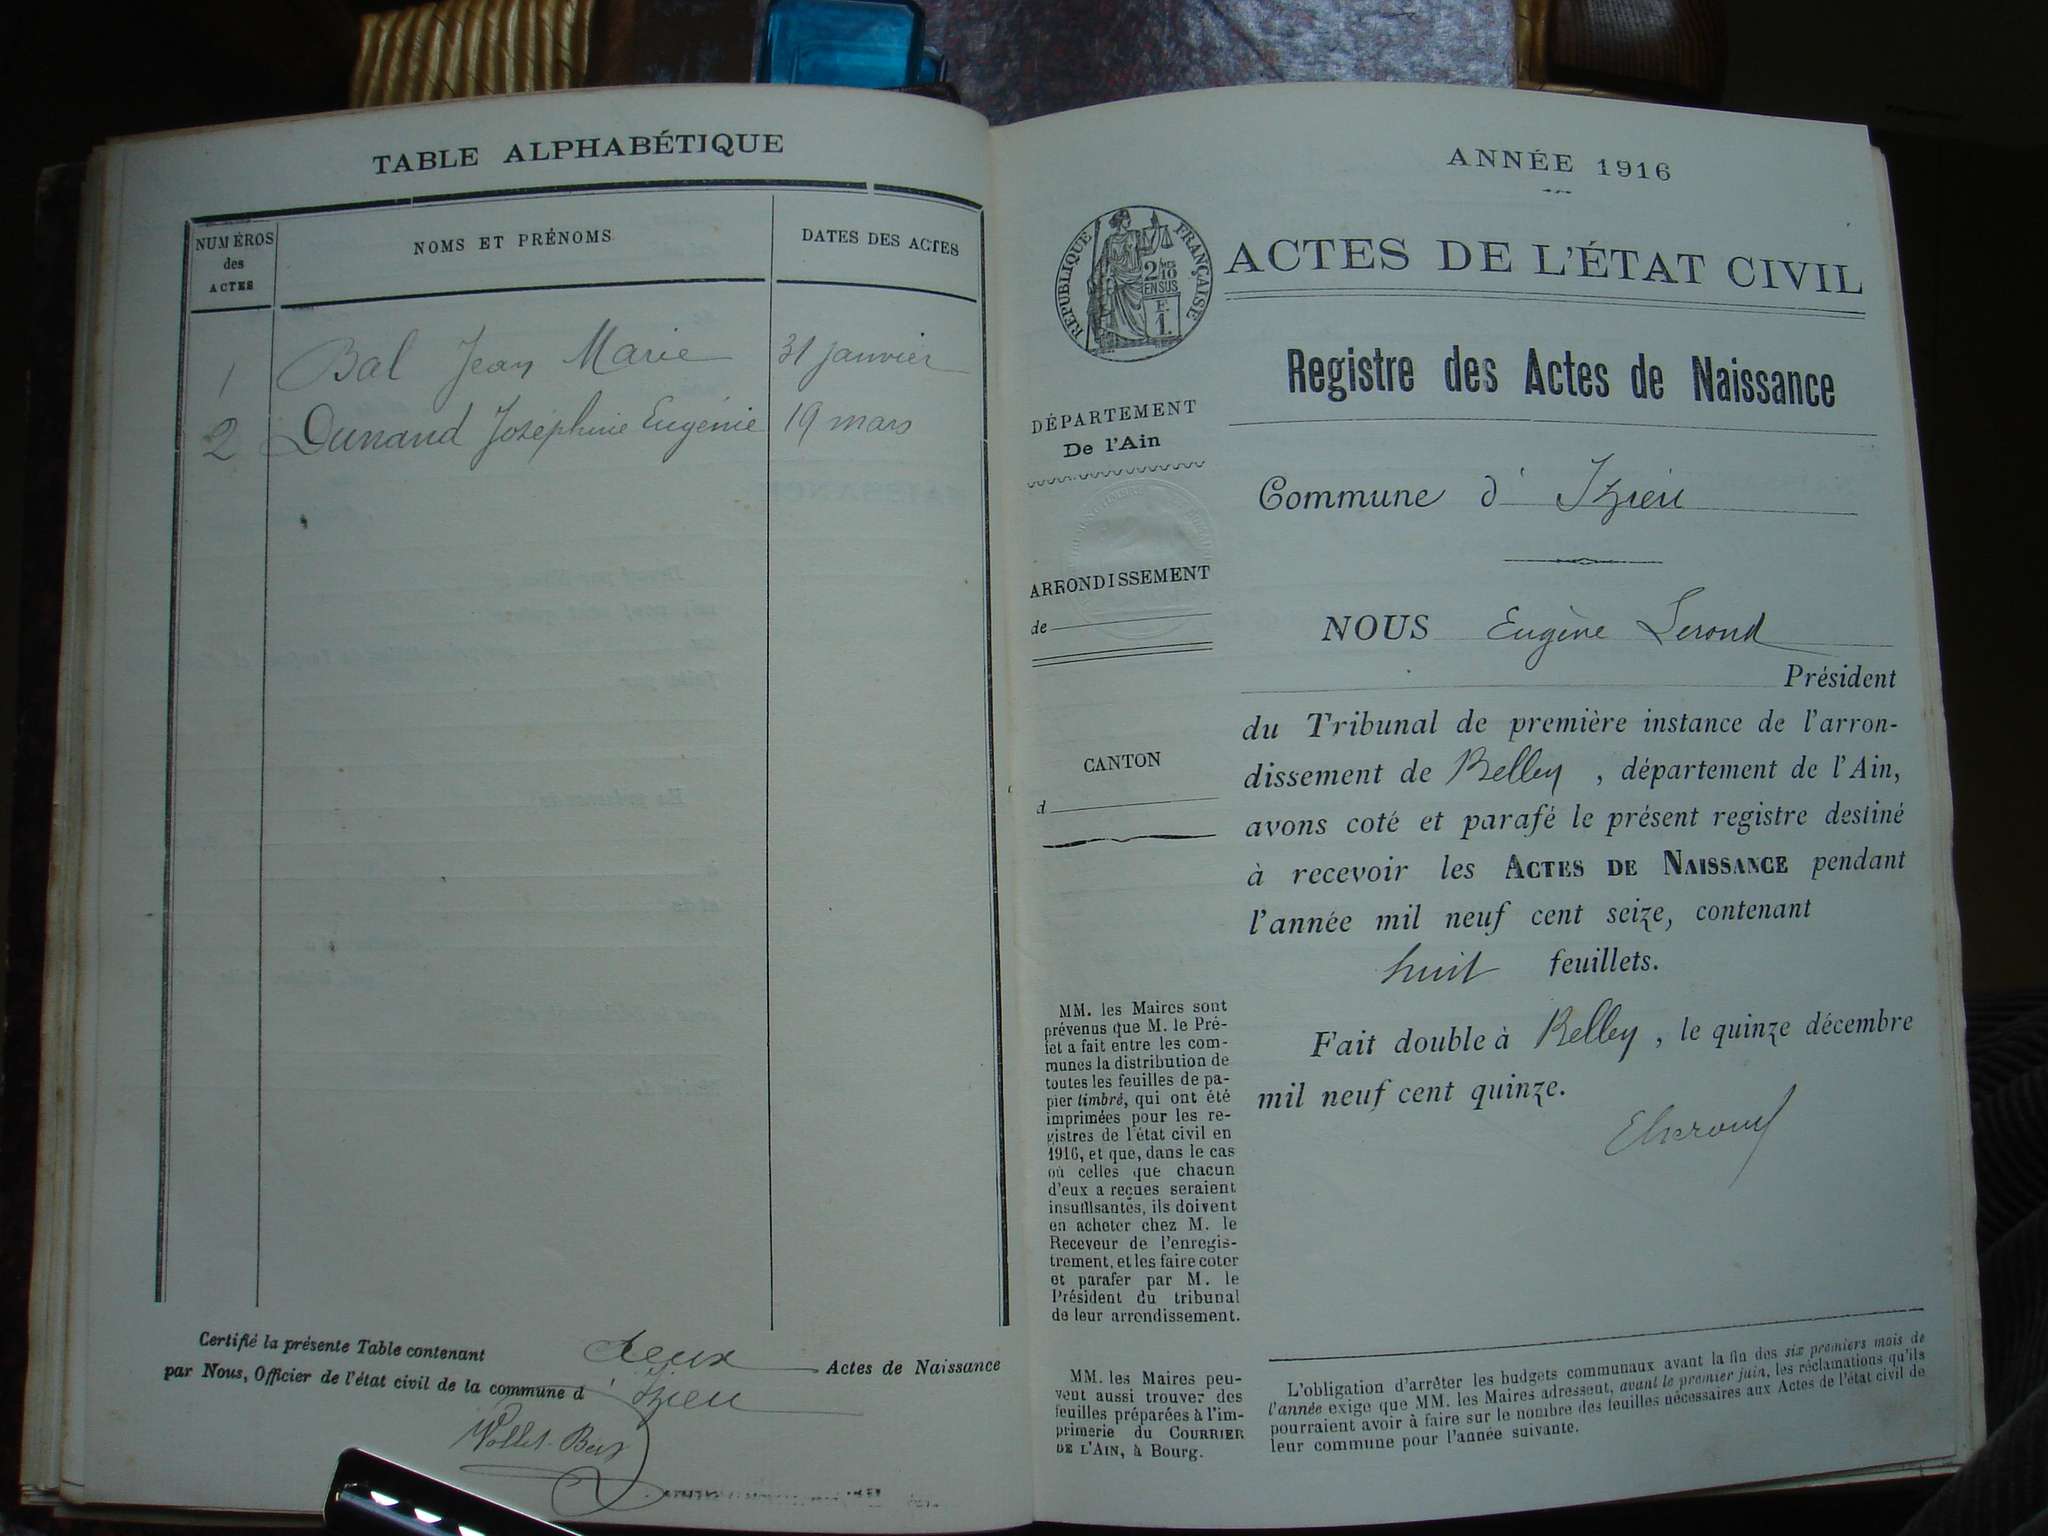 TABLE ALPHABÉTIQUE
NUMÉROS des ACTES
NOMS ET PRÉNOMS
DATES DES ACTES
1 Bal Jean Marie 31 janvier
2 Dunand Joséphine Eugénie 19 mars
Certifié la présente Table contenant deux Actes de Naissance
par Nous, Officier de l'état civil de la commune d'Izieu
ANNÉE 1916
RÉPUBLIQUE FRANÇAISE
2/10 EN SUS
F. 1.
ACTES DE L'ÉTAT CIVIL
Registre des Actes de Naissance
DÉPARTEMENT
De l'Ain
Commune d' Izieu
ARRONDISSEMENT
de
NOUS Eugène Lerond
Président
du Tribunal de première instance de l'arron-
dissement de Belley, département de l'Ain,
avons coté et parafé le présent registre destiné
à recevoir les ACTES DE NAISSANCE pendant
l'année mil neuf cent seize, contenant
huit feuillets.
Fait double à Belley, le quinze décembre
mil neuf cent quinze.
CANTON
d
MM. les Maires sont
prévenus que M. le Pré-
fet a fait entre les com-
munes la distribution de
toutes les feuilles de pa-
pier timbré, qui ont été
imprimées pour les re-
gistres de l'état civil en
1916, et que, dans le cas
où celles que chacun
d'eux a reçues seraient
insuffisantes, ils doivent
en acheter chez M. le
Receveur de l'enregis-
trement, et les faire coter
et parafer par M. le
Président du tribunal
de leur arrondissement.
MM. les Maires peu-
vent aussi trouver des
feuilles préparées à l'im-
primerie du COURRIER
DE L'AIN, à Bourg.
L'obligation d'arrêter les budgets communaux avant la fin des six premiers mois de
l'année exige que MM. les Maires adressent, avant le premier juin, les réclamations qu'ils
pourraient avoir à faire sur le nombre des feuilles nécessaires aux Actes de l'état civil de
leur commune pour l'année suivante.